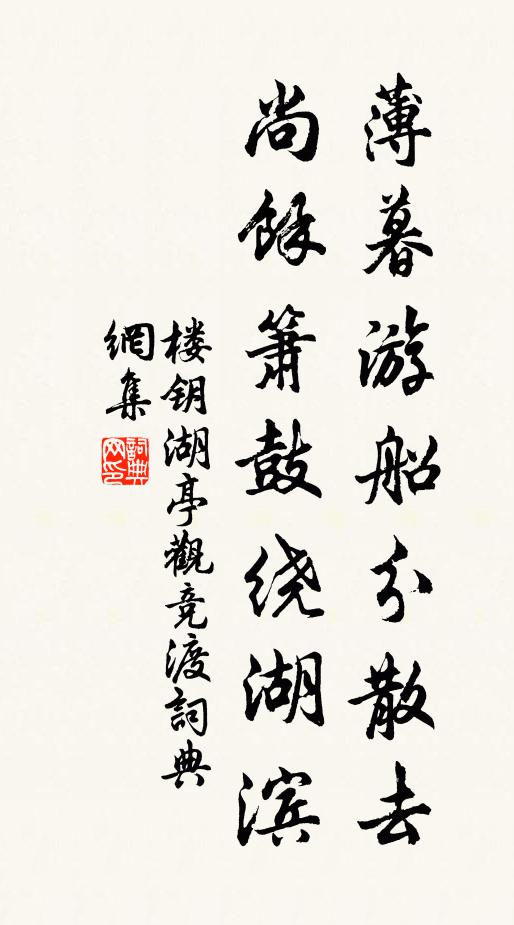 薄暮游船分散去
尚餘箫鼓绕湖滨
楼钥湖亭觀竞渡詞典
網集
詞典
网印